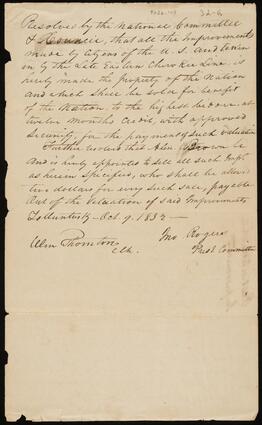 32-6
Resolved by the National Committee
& Council, that all the Improvements
made by Citizens of the U. S. and taken
in by the late Eastern Cherokee Line is
hereby made the property of the Nation
and which shall be sold for benefit
of the Nation, to the highest bidder, at
twelve months Credit, with approved
Security, for the payment of such valuation
Further resolved that Alex Brown be
and is hereby appointed to sell all such Impts
as herein Specified, who shall be allowed
two dollars for every such sale, payable
out of the valuation of said Improvements
Tolluntusky - Oct 9. 1832 -
Wm Thornton
Clk.
Jno Rogers
Prest Committee